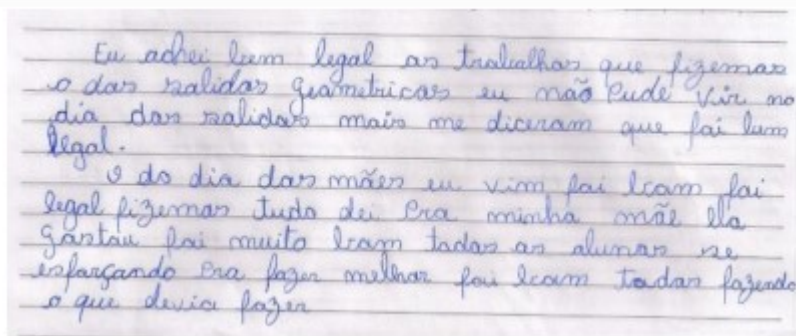 Eu achei bem legal os trabalhos que fizemos
o das solidos geometricos eu não pude vir no
dia dos solidos mais me diceram que foi bem
legal.
O do dia das mães eu vim foi bom foi
legal fizemos tudo dei pra minha mãe ela
gostou foi muito bom todos os alunos se
esforçando pra fazer melhor foi bom todos fazendo
o que devia fazer